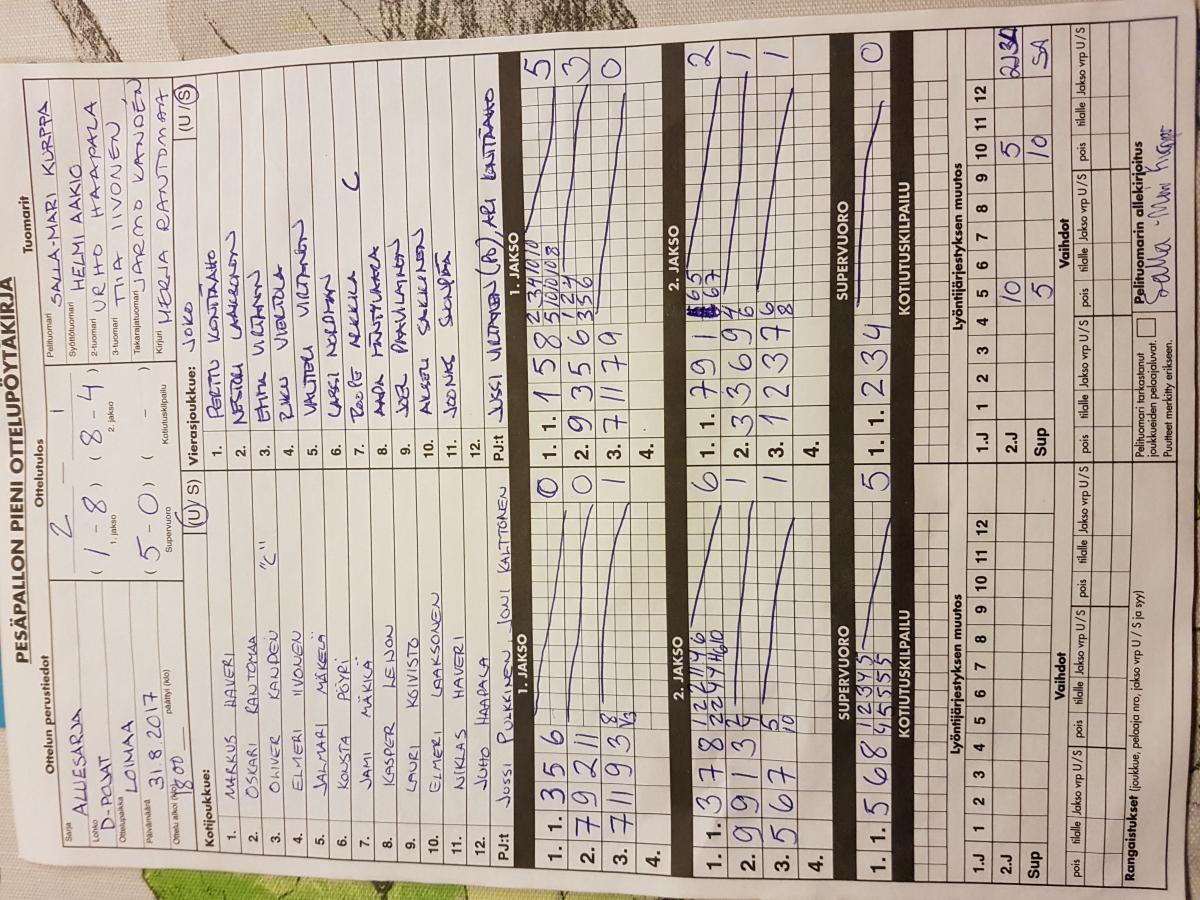 PESÄPALLON PIENI OTTELUPÖYTÄKIRJA
Ottelun perustiedot
Sarja ALUESARJA
Lohko D-POJAT
Ottelupaikka LOIMAA
Päivämäärä 31.8.2017
Ottelu alkoi (klo) 18.00 päättyi (klo)
Ottelutulos
2 1
( 1 - 8 ) ( 8 - 4 )
1. jakso 2. jakso
( 5 - 0 ) ( - )
Supervuoro Kotiutuskilpailu
Tuomarit
Pelituomari SALLA-MARI KURPPA
Syöttötuomari HELMI AAKIO
2-tuomari URHO HAAPALA
3-tuomari TIIA IIVONEN
Takarajatuomari JARMO KANDEN
Kirjuri MERJA RANTOMAA
Kotijoukkue: (U/ S)
1. MARKUS HAVERI
2. OSKARI RANTOMAA
3. OLIVER KANDEN "C"
4. ELMERI IIVONEN
5. JALMARI MÄKELÄ
6. KOUSTA PÖYRI
7. JAMI MÄKILÄ
8. KASPER LEINON
9. LAURI KOIVISTO
10. ELMERI LAAKSONEN
11. NIKLAS HAVERI
12. JUHO HAAPALA
PJ:t JUSSI PULKKINEN, JONI KALTTONEN
Vierasjoukkue: JOKO (U / S)
1. PERTTU KONTTAAHO
2. NESTORI LAAKKONEN
3. EMMA VIRTANEN
4. RIKU VIERTOLA
5. VALTTERI VIRTANEN
6. LASSI NORDMAN
7. ROOPE ARKKILA C
8. AADA MÄNTYVAARA
9. JOEL PAAVILAINEN
10. AKSELI SAUKKONEN
11. JOONAS
12.
PJ:t JUSSI VIRTANEN (PJ), ARI KONTTAAHO
1. JAKSO
1. 1. 3 5 6 0
2. 7 9 2 11 0
3. 7 11 9 3 8 1
4.
1. JAKSO
1. 1. 1 5 8 5
2. 9 3 5 6 3
3. 7 11 7 9 0
4.
2. JAKSO
1. 1. 3 7 8 6
2. 9 9 1 3 1
3. 5 6 7 1
4.
2. JAKSO
1. 1. 7 9 1 2
2. 3 3 6 9 1
3. 1 2 3 7 1
4.
SUPERVUORO
1. 1. 5 6 8 5
SUPERVUORO
1. 1. 2 3 4 0
KOTIUTUSKILPAILU
KOTIUTUSKILPAILU
Lyöntijärjestyksen muutos
1.J 1 2 3 4 5 6 7 8 9 10 11 12
2.J
Sup
Lyöntijärjestyksen muutos
1.J 1 2 3 4 5 6 7 8 9 10 11 12
2.J 10 5
Sup 5 10 SA
Vaihdot
pois tilalle Jakso vrp U / S pois tilalle Jakso vrp U / S pois tilalle Jakso vrp U / S
Vaihdot
pois tilalle Jakso vrp U / S pois tilalle Jakso vrp U / S pois tilalle Jakso vrp U / S
Rangaistukset (joukkue, pelaaja nro, jakso vrp U / S ja syy)
Pelituomari tarkastanut
joukkueiden pelaajaluvat.
Puutteet merkitty erikseen.
Pelituomarin allekirjoitus
Salla-Mari Kurppa